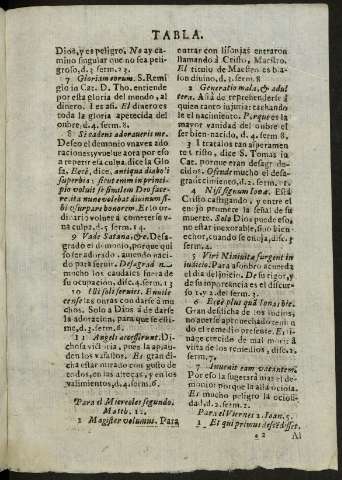 TABLA.
Dios, y es peligro. No ay ca-
mino singular que no sea peli-
groso, d. 3. serm. 23.
7 Gloriam eorum. S. Remi
gio in Cat. D. Tho. entiende
por esta gloria del mundo, al
dinero. El dinero es
toda la gloria apetecida del
onbre. d. 4. serm. 8.
8 Si cadens adoraveris me.
Deseo el demonio vna vez ado
por eso
a repetir esta culpa. dice la Glo
sa,
superbia: sicut enim in princi-
pio voluit se similem Deo face-
re, ita nunc volebat divinum si-
bi usurpare honorem. Es lo or-
dinario volver á cometerse v-
na culpa. d. 5. serm. 14.
9 Vade Satana, &c. Desa-
grado el demonio, porque qui
so ser adorado, auiendo naci-
do para servir.
mucho los caudales fuera de
su ocupacion, disc. 4. serm. 13
10 Illi soli servies.
las otras con darse á mu
chos. Solo a Dios á de darse
la adoracion, para que se esti-
me, d. 3. serm. 6.
11 Angeli accesserunt. Di-
chosa vitoria, pues la aplau-
den los vasallos. Es gran di-
cha estar mirado con gusto de
todos, en las alteças, y en los
valimientos, d. 4. serm. 6.
Para el Miercoles segundo.
Matth. 12.
1 Magister volumus. Para
entrar con lisonjas entraron
llamando á Cristo, Maestro.
El titulo de Maestro es bla-
son divino, d. 3. serm. 8
2 Generatio mala, & adul
tera. Aña de reprehenderse á
quien canto injuria: tachando
le el nacimiento. Porque es la
mayor vanidad del onbre el
ser bien nacido, d. 4. serm. 8.
3 tratalos tan asperamen-
te Cristo, dice S. Tomas in
Cat. porque eran desagrade-
cidos. Ofende mucho el desa-
gradecimiento, d. 2. serm. 11.
4 Nisi signum Iona. Está
Cristo castigando, y entre el
enojo promete la señal de su
muerte. Solo Dios puede eso,
no estar inexorable, si no bien-
echor, cuando se enoja, disc. 3
serm. 4.
5 Viri Ninivitæ surgent in
iudicio. Para asombro acuerda
el dia del juicio. De su rigor, y
de su impaciencia es el discur-
so 1. y 2. del serm. 3.
6 Ecce plus quã Iona, hic.
Gran desdicha de los iudios,
no averse aprovechado tenien
do el remedio presente. Es li-
naje crecido de mal morir á
vista de los remedios, disc. 2.
serm. 7.
7 Invenit eam vacantem.
Por eso la sugetará mas el de-
monio porque la alló ociosa.
Es mucho peligro la ociosi-
dad. d. 2. serm. 2.
Para el Viernes 2. Ioan. 5.
1 Et qui primus descendisset.
¶ 2
Al